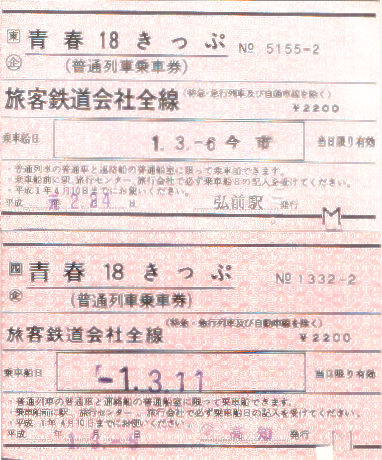 東 企 青春18きっぷ № 5155-2
(普通列車乗車券)
旅客鉄道会社全線 (特急・急行列車及び自動車線を除く)
￥2200
乗車船日 1.3.-6 今市 当日限り有効
・普通列車の普通車と連絡船の普通船室に限って乗車船できます。
・乗車船前に駅、旅行センター、旅行会社で必ず乗車船日の記入を受けてください。
・平成1年4月10日までにお使いください。
平成 元 2.24 日 弘前駅 発行
四 企 青春18きっぷ № 1332-2
(普通列車乗車券)
旅客鉄道会社全線 (特急・急行列車及び自動車線を除く)
￥2200
乗車船日 -1.3.11 当日限り有効
・普通列車の普通車と連絡船の普通船室に限って乗車船できます。
・乗車船前に駅、旅行センター、旅行会社で必ず乗車船日の記入を受けてください。
・平成 1年4月10日までにお使いください。
平成 年 日 高知 発行